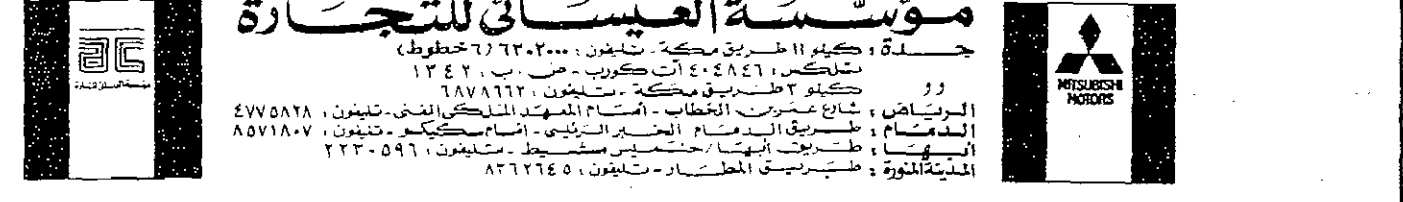 مؤسسة العيسائى للتجارة
جــدة : كيلو ١١ طريق مكة - تليفون : ٦٣٠٢٠٠٠ (٦ خطوط)
تلكس : ٤٠٤٨٤٦ آت كورب - ص . ب : ١٣٤٢
كيلو ٣ طريق مكة - تليفون : ٦٨٧٨٦٦٢
الرياض : شارع عمر بن الخطاب - أمام المعهد الملكى الفنى - تليفون : ٤٧٧٥٨٢٨
الدمام : طريق الدمام الخبر الرئيسى - أمام سكيكو - تليفون : ٨٥٧١٨٠٧
أبها : طريق أبها / خميس مشيط - تليفون : ٢٢٣٠٥٩٦
المدينة المنورة : طريق المطار - تليفون : ٨٣٦٢٦٤٥
MITSUBISHI
MOTORS